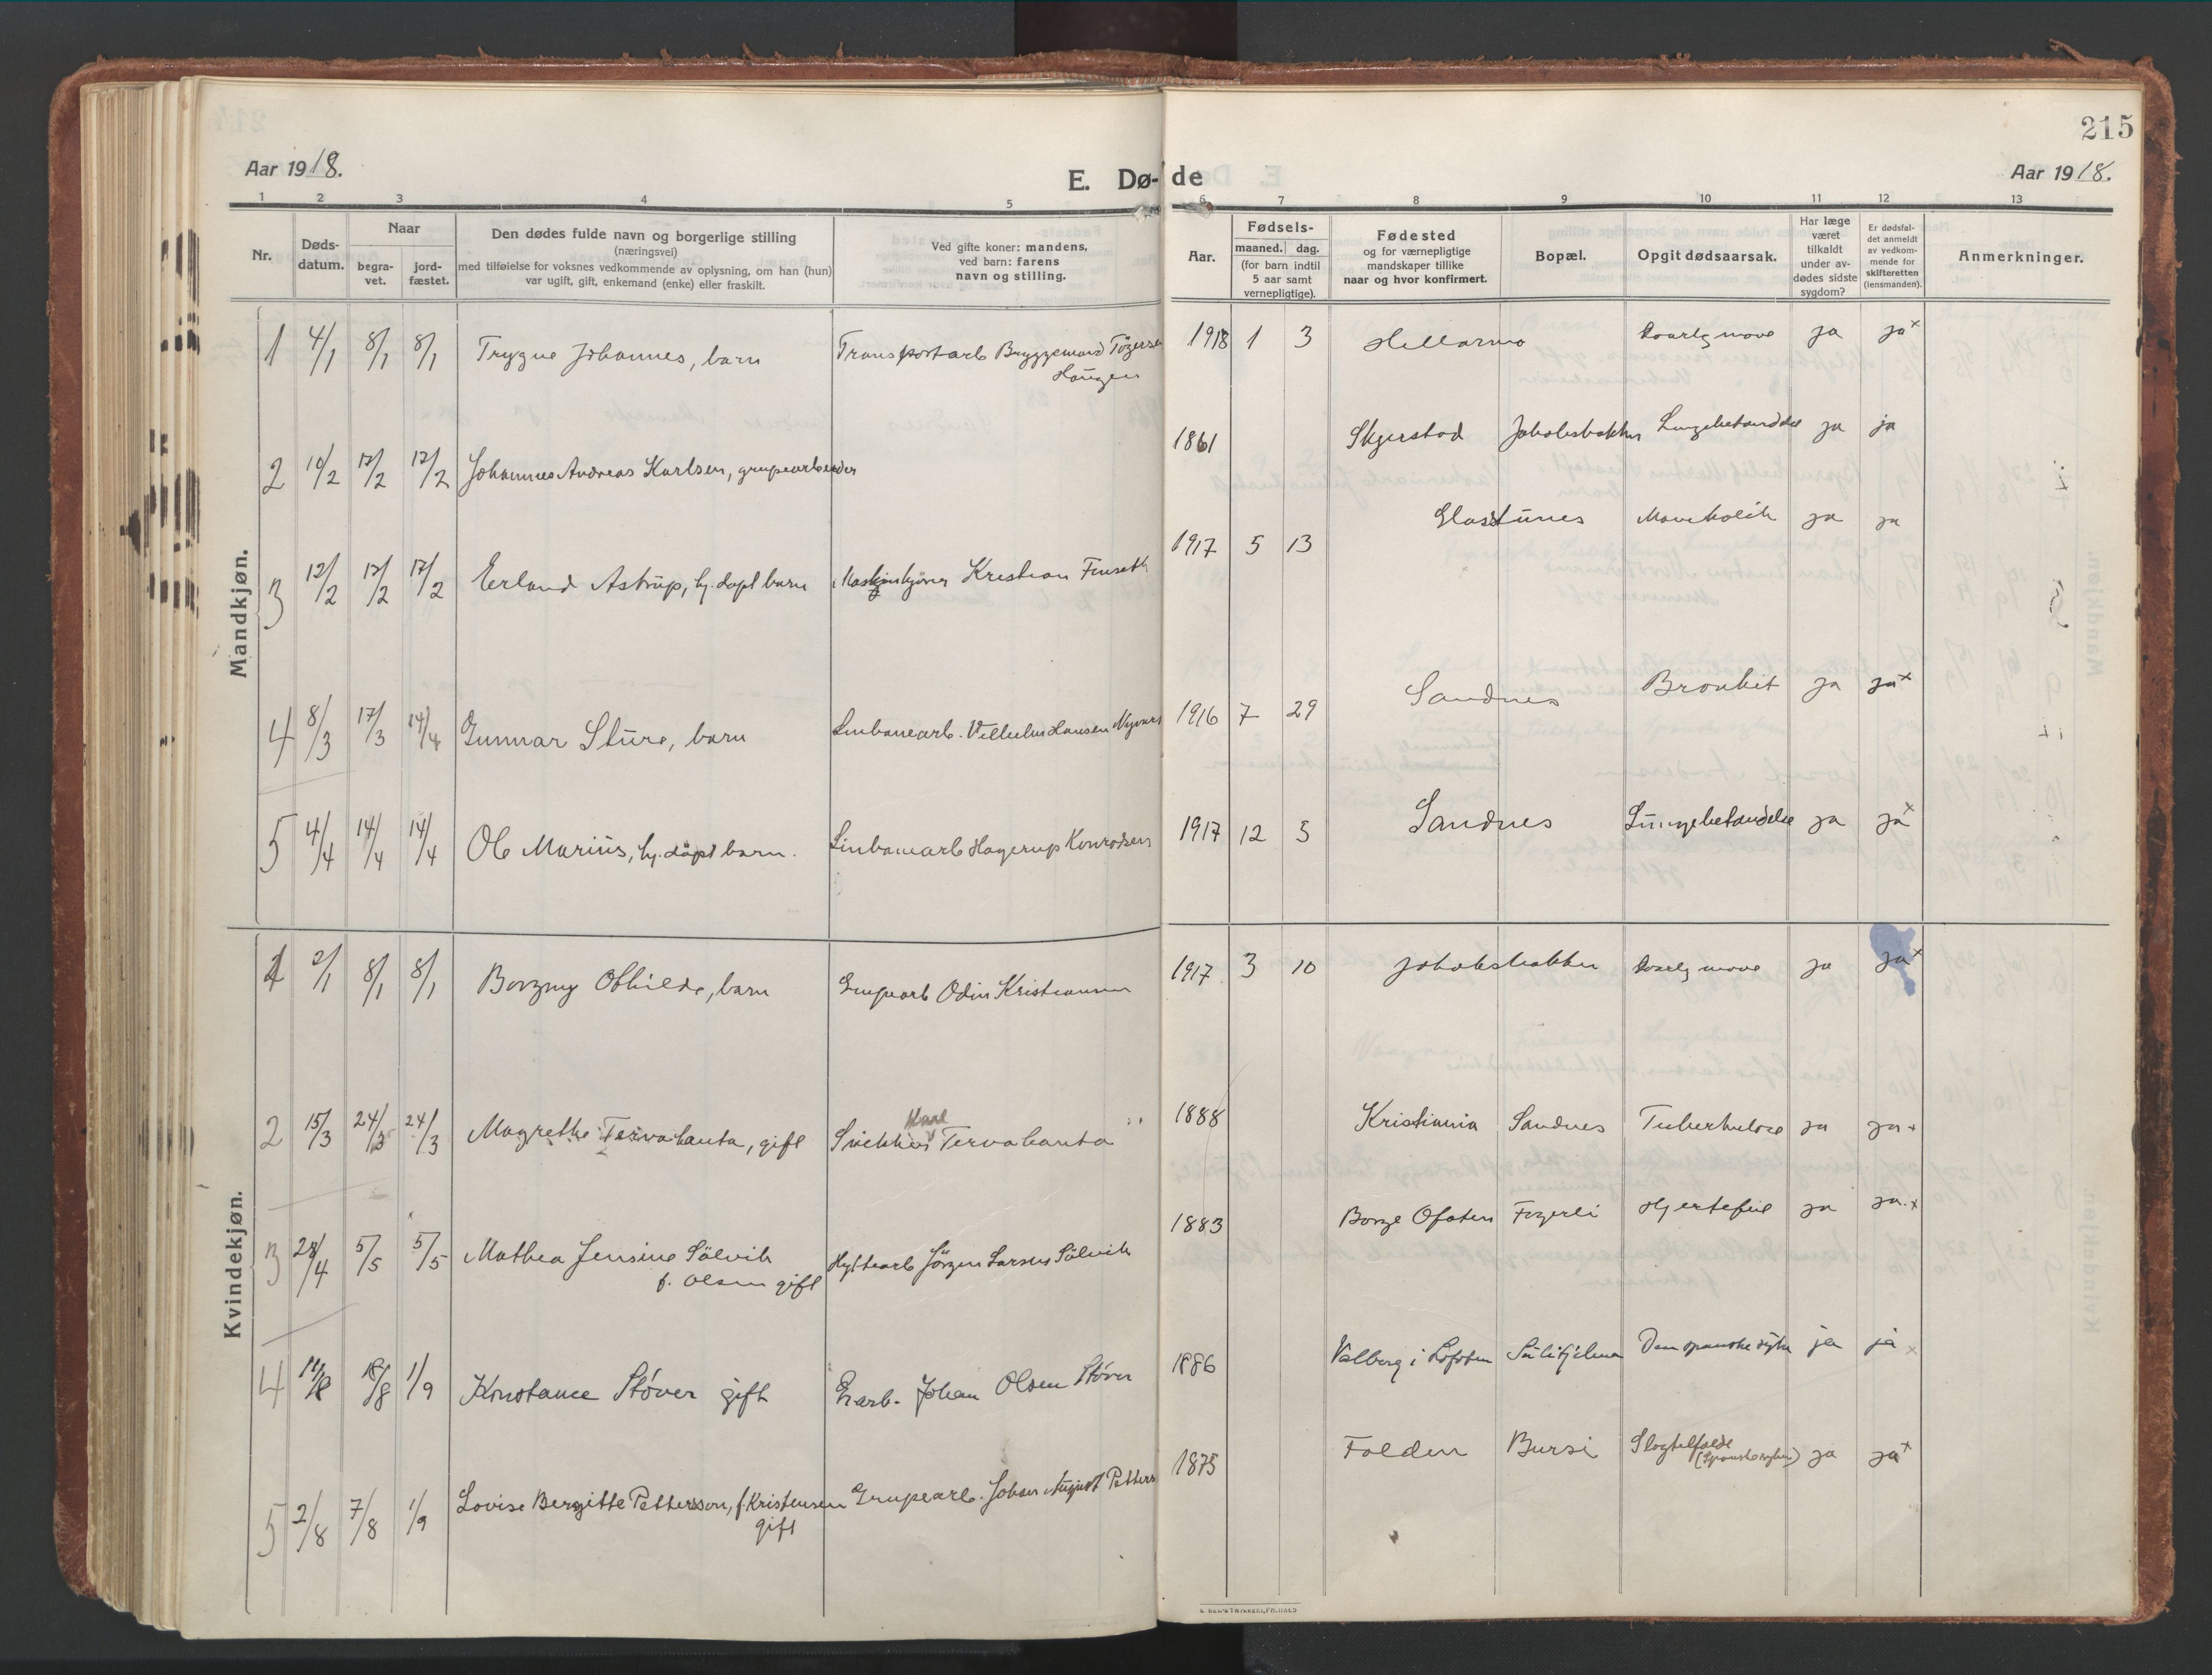 215
Aar 1918.
E. Dø- de
Aar 1918.
1 2 3 4 5 6 7 8 9 10 11 12 13
Nr.
Døds-
datum.
Naar
begra-
vet.
jord-
fæstet.
Den dødes fulde navn og borgerlige stilling
(næringsvei)
med tilføielse for voksnes vedkommende av oplysning, om han (hun)
var ugift, gift, enkemand (enke) eller fraskilt.
Ved gifte koner: mandens,
ved barn: farens
navn og stilling.
Aar.
Fødsels-
maaned. dag.
(for barn indtil
5 aar samt
vernepligtige).
Fødested
og for værnepligtige
mandskaper tillike
naar og hvor konfirmert.
Bopæl.
Opgit dødsaarsak.
Har læge
været
tilkaldt
under av-
dødes sidste
sygdom?
Er dødsfal-
det anmeldt
av vedkom-
mende for
skifteretten
(lensmanden).
Anmerkninger.
Mandkjøn.
1 4/1 8/1 8/1 Trygve Johannes, barn Transportarb Bryggemand Tøgersen 1918 1 3 Hellarmo Daarlig mave ja ja x
Haugen
2 10/2 17/2 17/2 Johannes Andreas Karlsen, grupearbeider 1861 Skjerstad Jakobsbakken Lungebetændelse ja ja
3 12/2 17/2 17/2 Erland Astrup, hj. døpt barn Maskinkjører Kristian Finseth 1917 5 13 Glastunes Mavekolik ja ja
4 8/3 17/3 14/4 Gunnar Sture, barn Linbanearb. Vilhelm Hansen 1916 7 29 Sandnes Bronkit ja ja x
5 4/4 14/4 14/4 Ole Marius, hj. døpt barn. Linbanearb Hagerup Konradsen 1917 12 5 Sandnes Lungebetændelse ja ja x
Kvindekjøn.
1 2/1 8/1 8/1 Borgny Othilde, barn Grupearb Odin Kristiansen 1917 3 10 Jakobsbakken Daarlig mave ja ja x
Karl
2 15/3 24/3 24/3 Magrethe Tervahauta, gift Snekker Tervahauta 1888 Kristiania Sandnes Tuberkulose ja ja x
3 28/4 5/5 5/5 Mathea Jensine Sölvik Hyttearb Jörgen Larsen Sölvik 1883 Borge Ofoten Fagerli Hjertefeil ja ja. x
f. Olsen gift
4 18/8 1/9 Konstance Støver gift Johan Olsen Støver 1886 Valberg i Lofoten Sulitjelma Den spanske syke ja ja x
5 2/8 7/8 1/9 Lovise Bergitte Pettersson, f. Kristensen Grupearb. Johan August Petters 1875 Folden Bursi Slagtilfælde ja ja x
gift
E. SEM'S TRYKKERI, FR.HALD